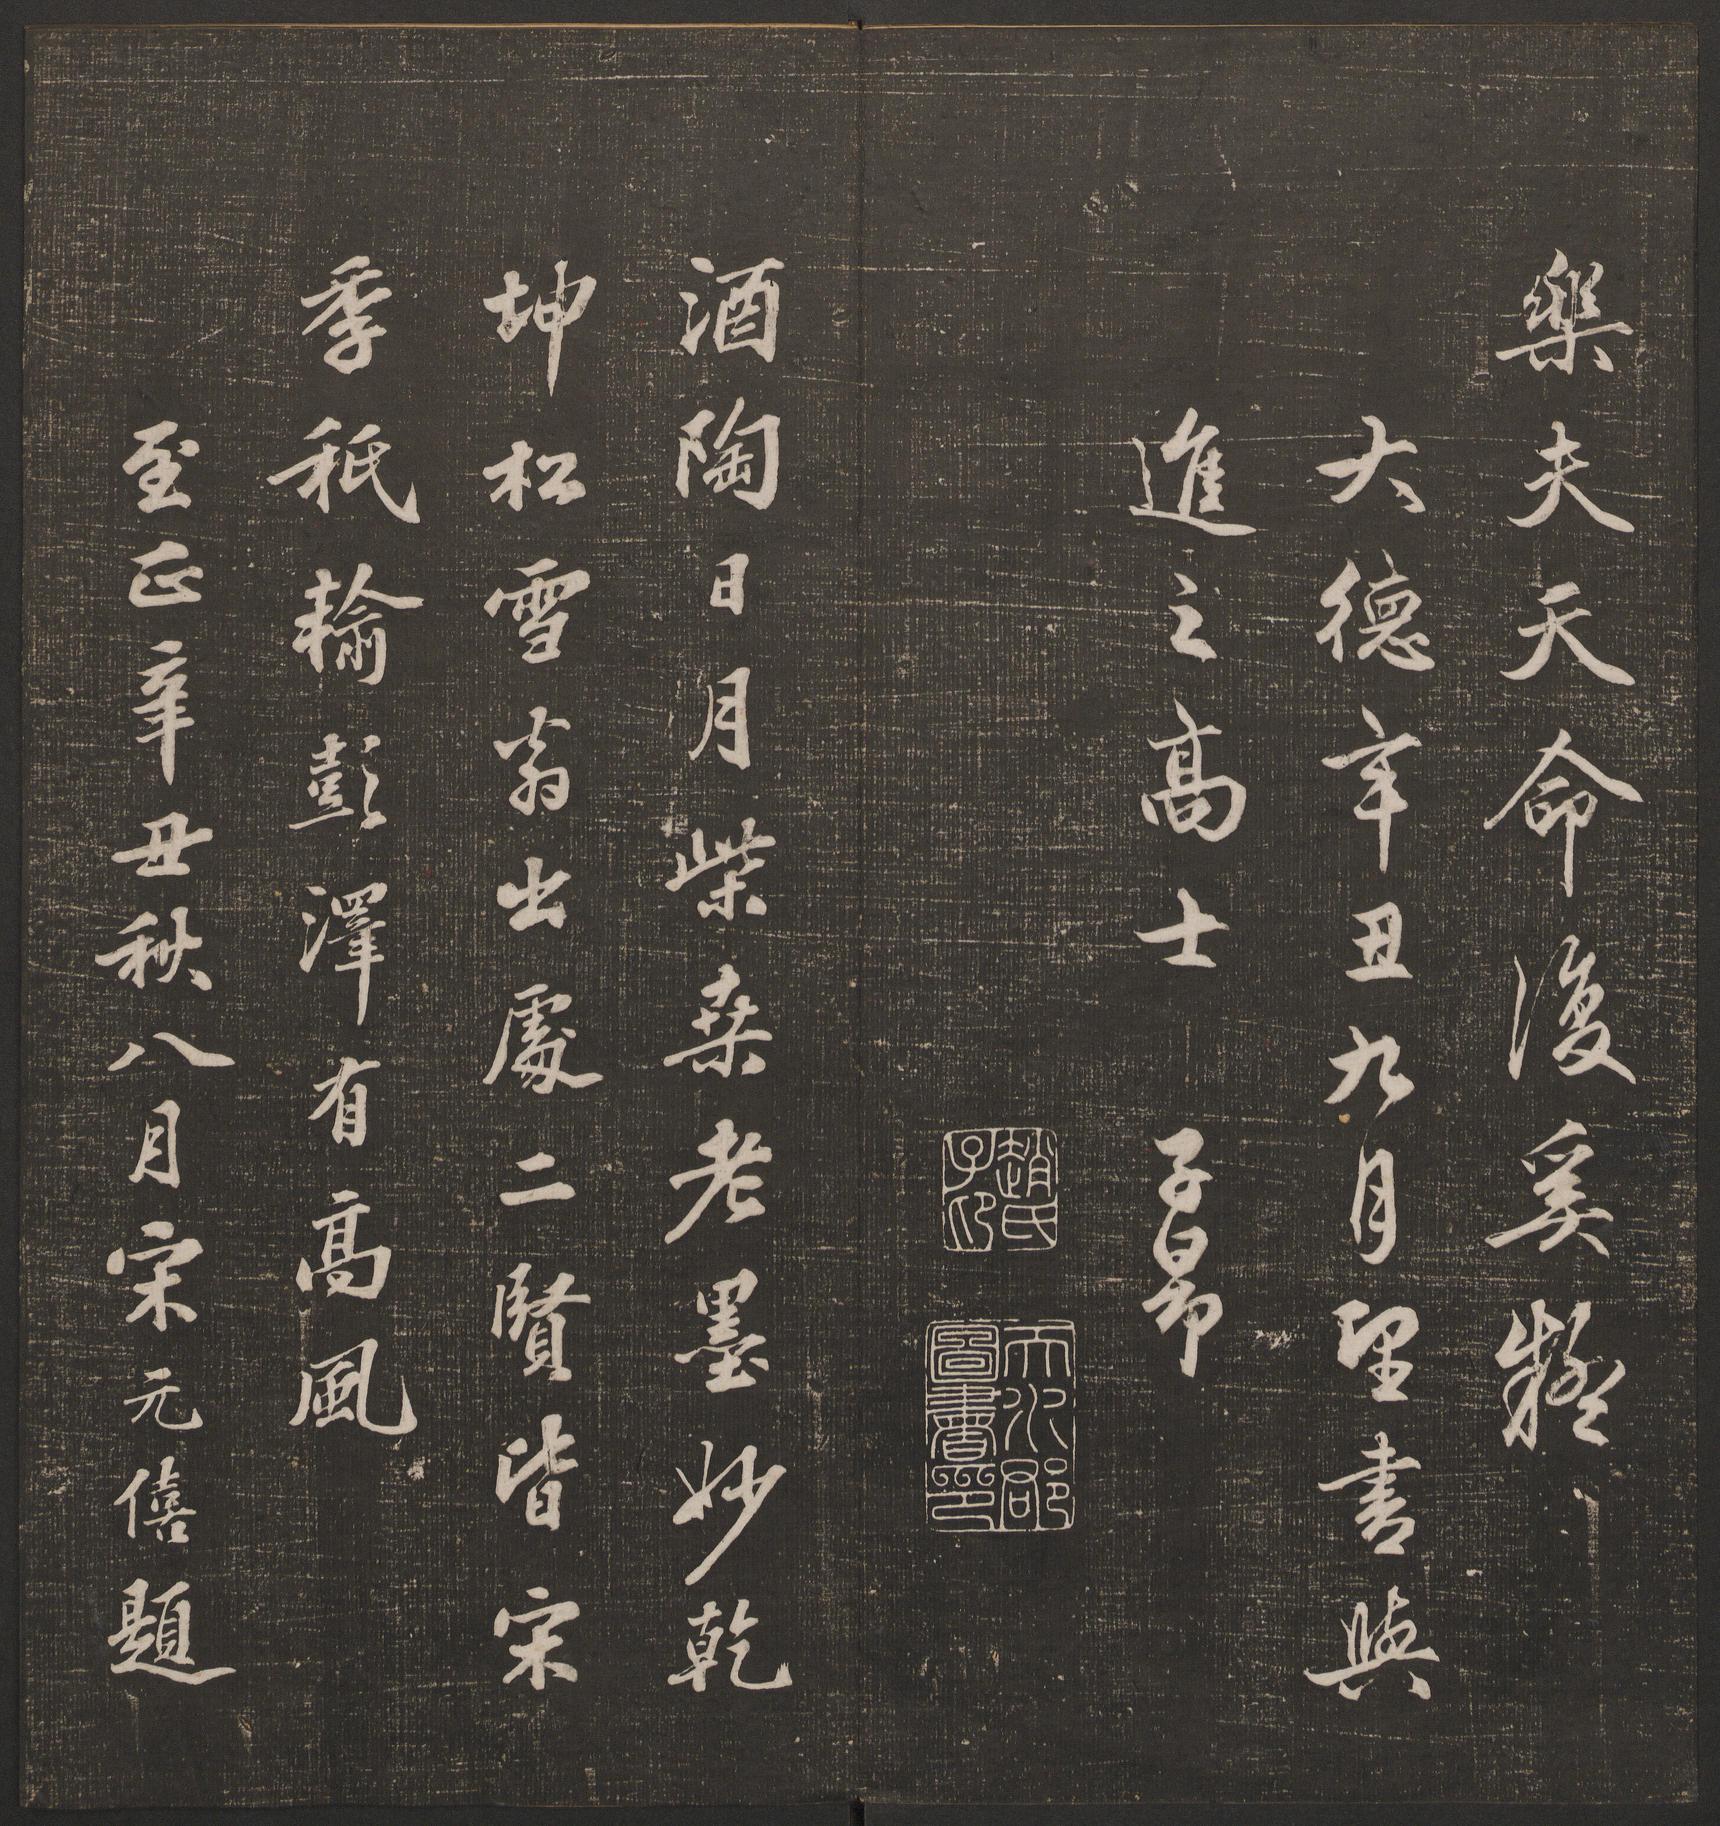 樂夫天命復奚疑
大德辛丑九月望書與
進之高士 子昂
趙氏子印
天水郡圖書印
酒陶日月柴桑老墨妙乾
坤松雪翁出處二賢皆宋
季秖輸彭澤有高風
至正辛丑秋八月宋元僖題